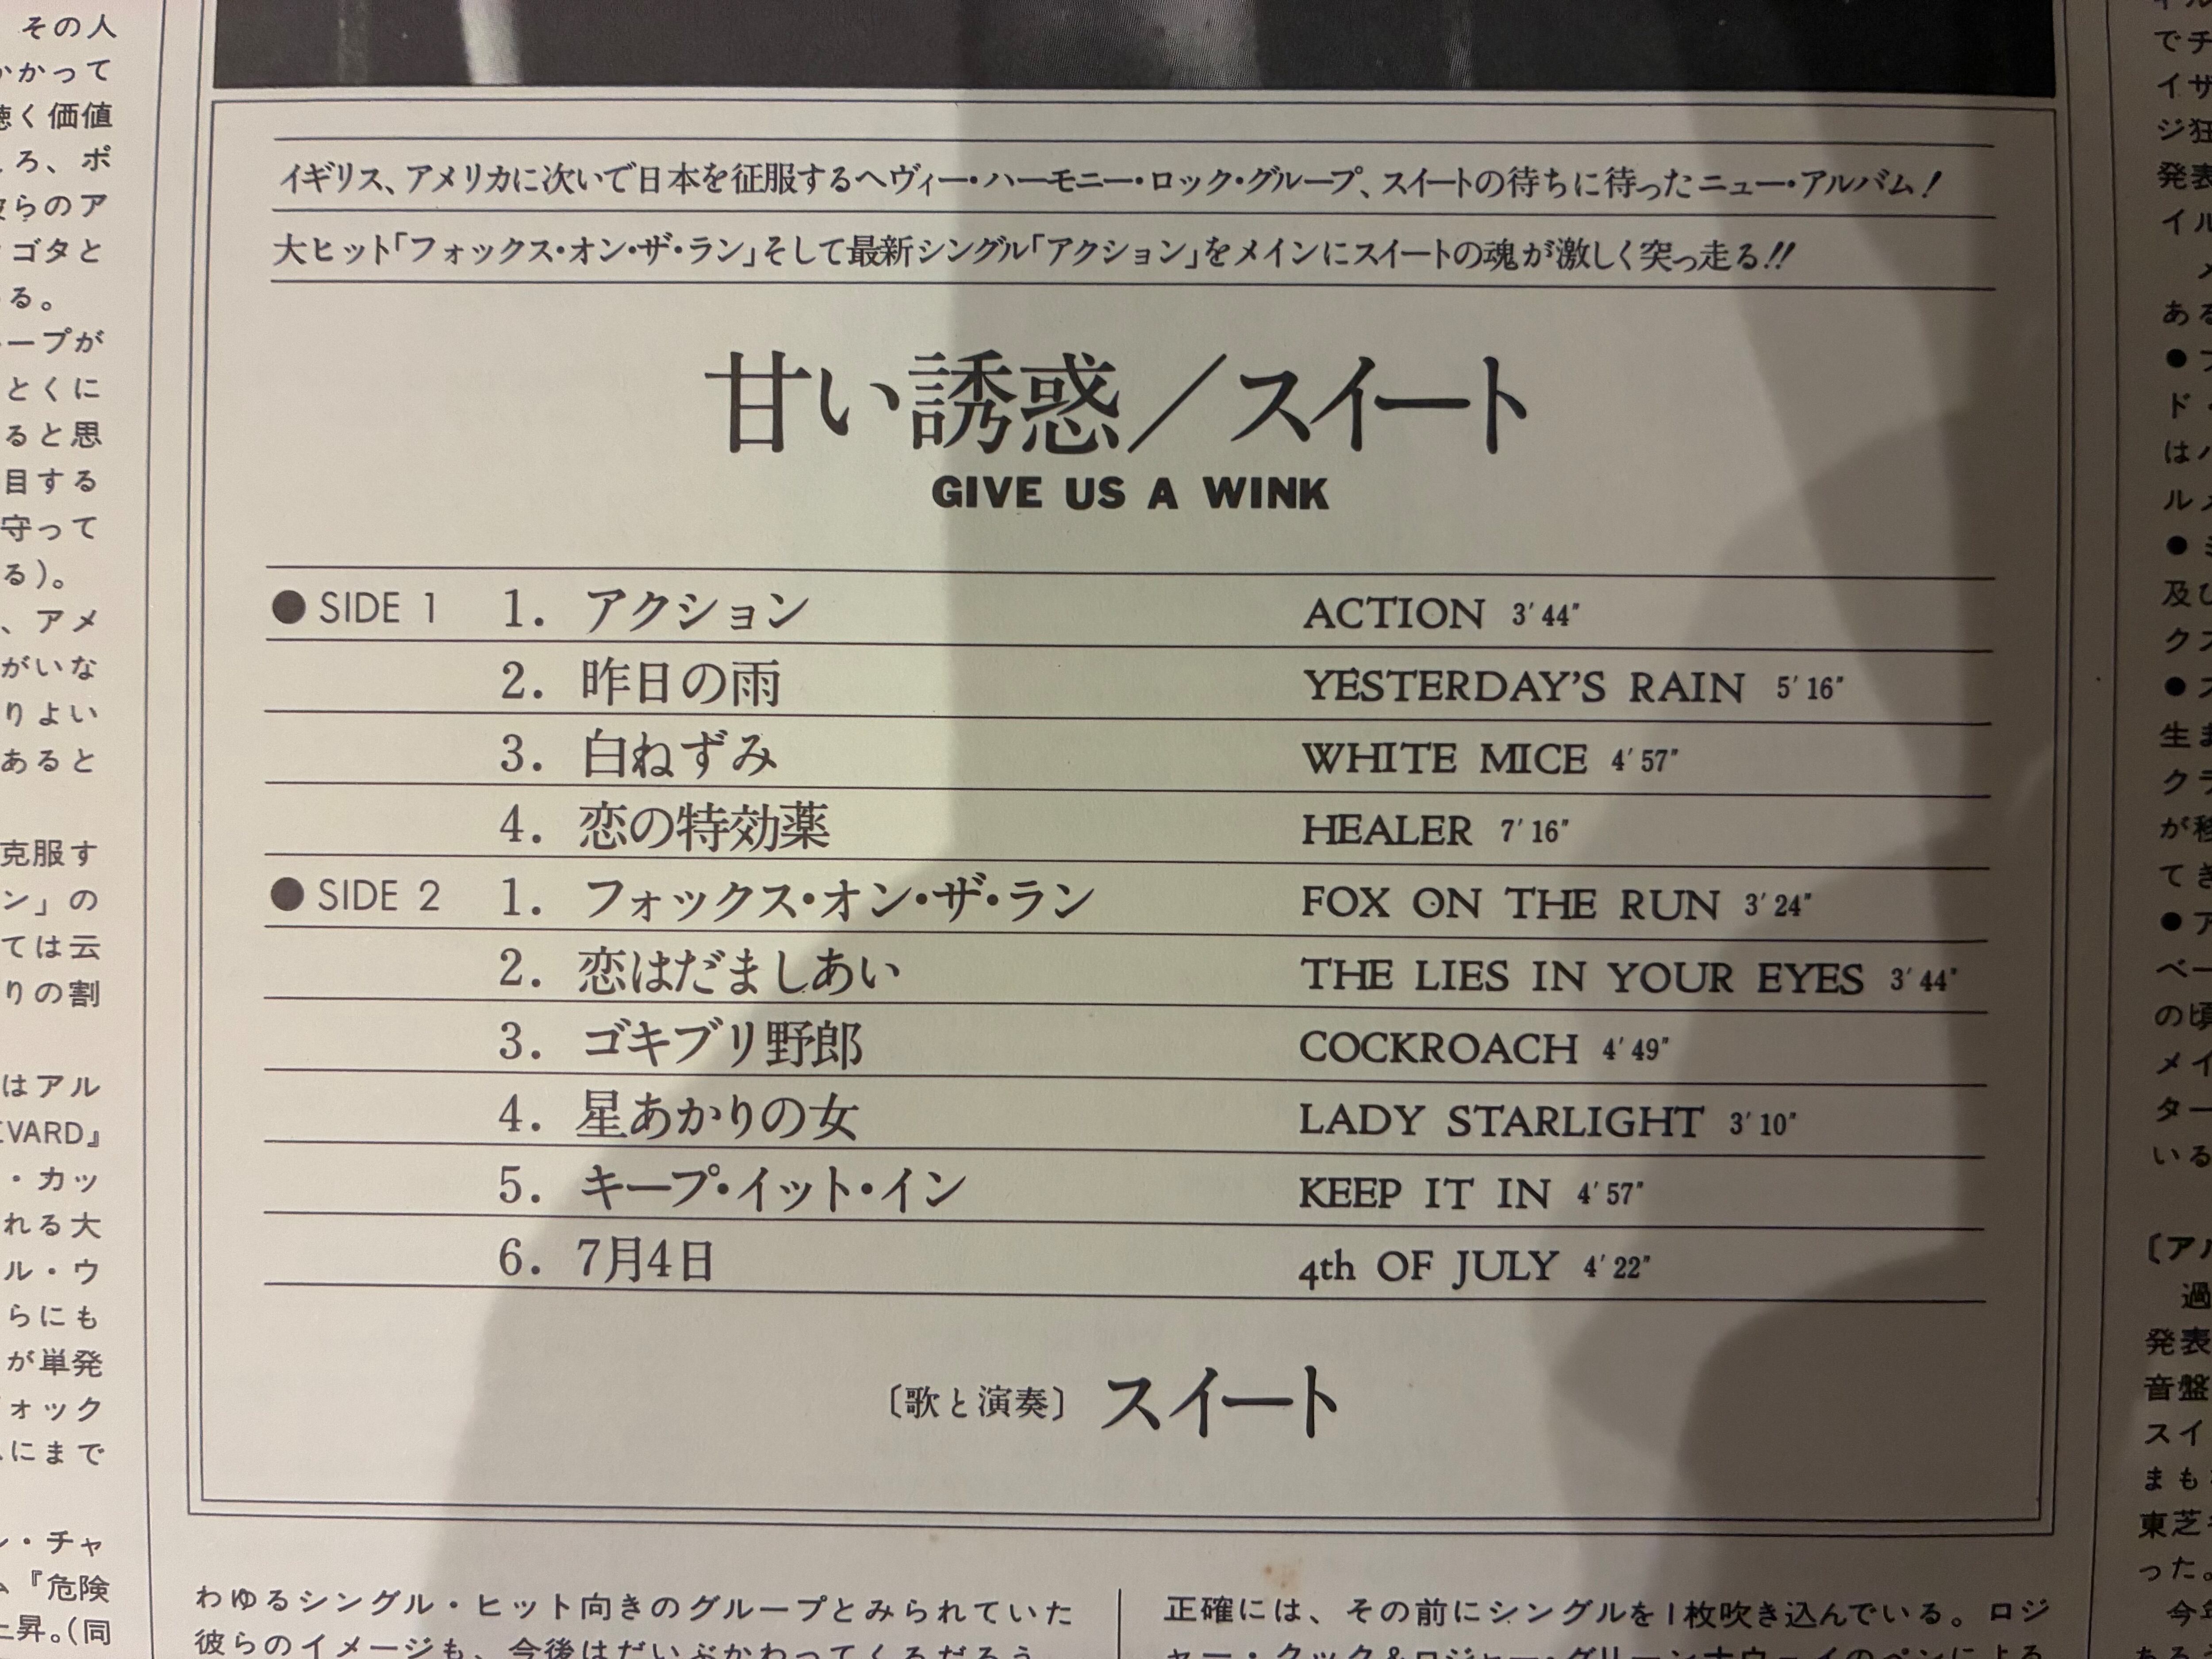 その人
かかって
聴く価値
ろ、ポ
らのア
ゴタと
る。
ープが
とくに
ると思
目する
守って
る)。
、アメ
がいな
りよい
あると
克服す
ン」の
ては云
りの割
はアル
EVARD』
・カッ
れる大
ル・ウ
らにも
が単発
ォック
にまで
ン・チャ
『危険
上昇。(同
イギリス、アメリカに次いで日本を征服するヘヴィー・ハーモニー・ロック・グループ、スイートの待ちに待ったニュー・アルバム!
大ヒット「フォックス・オン・ザ・ラン」そして最新シングル「アクション」をメインにスイートの魂が激しく突っ走る!!
甘い誘惑/スイート
GIVE US A WINK
●SIDE 1 1. アクション ACTION 3′44″
2. 昨日の雨 YESTERDAY'S RAIN 5′16″
3. 白ねずみ WHITE MICE 4′57″
4. 恋の特効薬 HEALER 7′16″
●SIDE 2 1. フォックス・オン・ザ・ラン FOX ON THE RUN 3′24″
2. 恋はだましあい THE LIES IN YOUR EYES 3′44″
3. ゴキブリ野郎 COCKROACH 4′49″
4. 星あかりの女 LADY STARLIGHT 3′10″
5. キープ・イット・イン KEEP IT IN 4′57″
6. 7月4日 4th OF JULY 4′22″
〔歌と演奏〕スイート
わゆるシングル・ヒット向きのグループとみられていた
彼らのイメージも、今後はだいぶかわってくるだろう。
正確には、その前にシングルを1枚吹き込んでいる。ロジ
ャー・クック&ロジャー・グリーンナウェイのペンによる
でチ
イサ
ジ狂
発表
イル
メ
ある
●
ド・
はハ
ルメ
●
及び
クス
●ス
生ま
クラ
が移
てき
●ア
ベー
の頃
メイ
ター
いる
〔アル
過
発表
音盤
スイ
まも
東芝
った。
今年